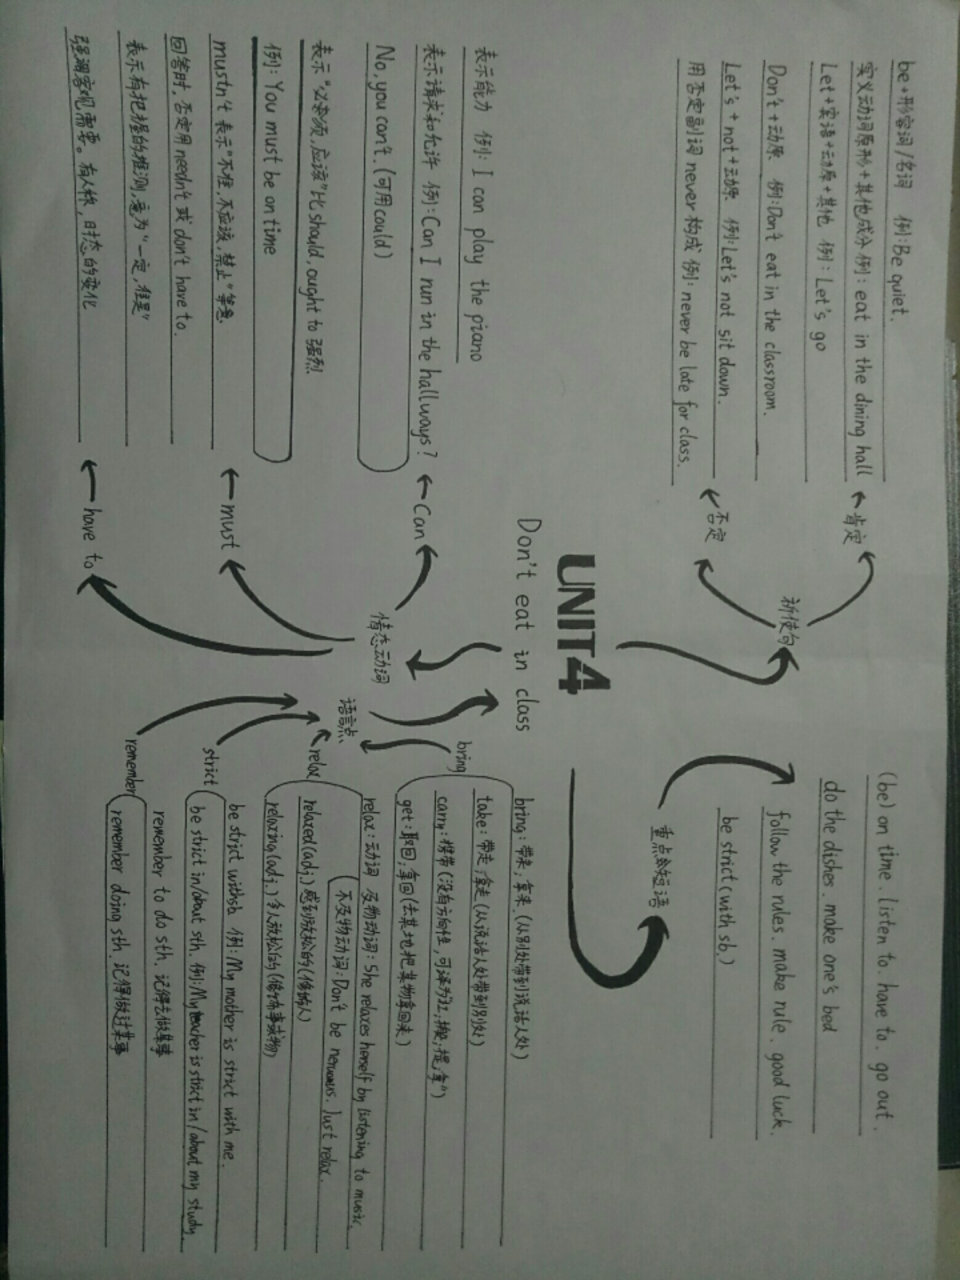 UNIT 4
Don't eat in class
祈使句
肯定
be+形容词/名词 例:Be quiet.
实义动词原形+其他成分 例: eat in the dining hall
Let+宾语+动原+其他 例: Let's go
否定
Don't+动原 例:Don't eat in the classroom.
Let's + not + 动原 例:Let's not sit down.
用否定副词 never 构成 例: never be late for class.
情态动词
Can
表示能力 例: I can play the piano
表示请求和允许 例: Can I run in the hallways?
No, you can't. (可用could)
must
表示"必须,应该"比should, ought to 强烈
例: You must be on time
mustn't 表示"不准,不应该,禁止"等意
回答时,否定用 needn't 或 don't have to.
表示有把握的推测,意为"一定,准是"
have to
强调客观需要。有人称,时态的变化
重点短语
(be) on time. listen to. have to. go out.
do the dishes. make one's bed
follow the rules. make rule. good luck.
be strict (with sb.)
语言点
bring
bring: 带来,拿来.(从别处带到说话人处)
take: 带走,拿走(从说话人处带到别处)
carry: 携带(没有方向性,可译为扛,搬,提,拿")
get: 取回,拿回(去某地把某物拿回来)
relax
relax: 动词 及物动词: She relaxes herself by listening to music.
不及物动词: Don't be nervous. Just relax.
relaxed(adj.) 感到放松的(修饰人)
relaxing(adj.) 令人放松的(修饰事或物)
strict
be strict with sb. 例: My mother is strict with me.
be strict in/about sth. 例: My teacher is strict in/about my study
remember
remember to do sth. 记得去做某事
remember doing sth. 记得做过某事